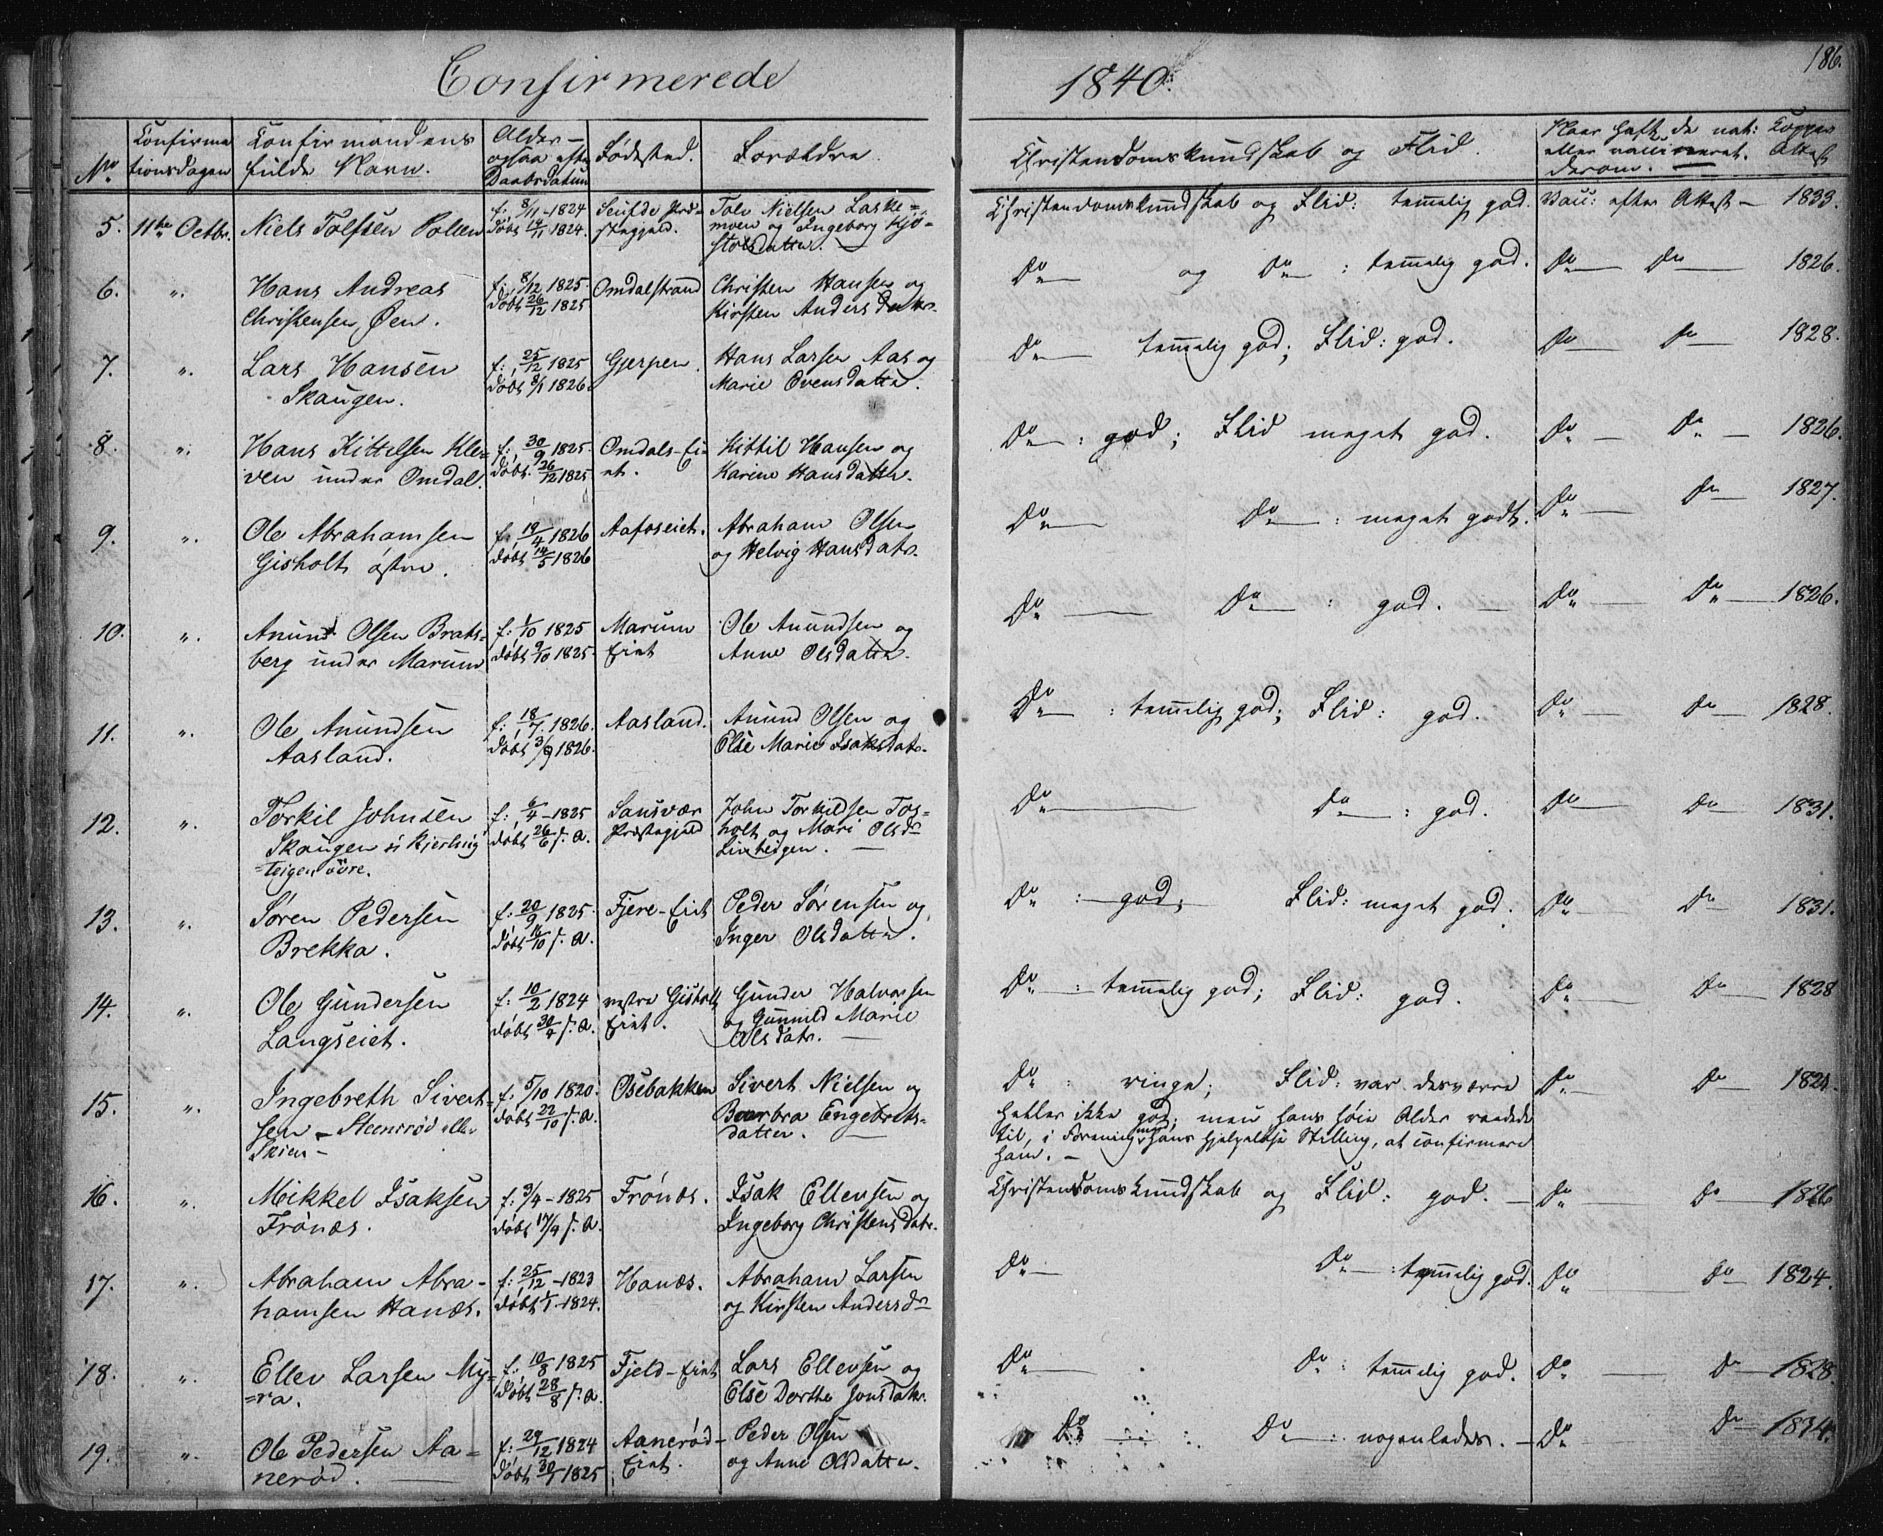 186.
Confirmerede 1840.
No. Confirmationsdagen Confirmandens fulde Navn. Alder ogsaa efter Daabsdatum Fødested. Forældre. Christendomskundskab og Flid. Naar haft de nat: eller vaccineret. derom. Koppe Attest
5. 11te Octbr. Niels Tolfsen Pollen f: 8/11-1824 døbt 14/11 1824. Præstegjeld. Tolv Nielsen og Ingeborg Kjøstolsdatter. Christendomskundskab og Flid: temelig god. Vac: efter Attest - 1833.
6. ". Hans Andreas Christensen Øen. f: 8/12 1825 døbt 26/12 1825 Omdalstrand Christen Hansen og Kirsten Andersdatr. Do og Do : temelig god. Do Do 1826.
7. ". Lars Hansen Skaugen. f: 25/12 1825 døbt 8/1 1826. Gjerpen. Hans Larsen Aas og Marie Ovensdatter. Do temelig god; Flid: god. Do Do 1828.
8. ". Hans Kittelsen Kleven under Omdal. f: 30/9 1825. døbt 26/12 1825 Omdals-Eiet. Kittil Hansen og Karine Hansdatter. Do : god; Flid meget god. Do Do 1826.
9. ". Ole Abrahamsen Gisholt østre. f: 19/4 1826 døbt 14/5 1826 Aafoseiet. Abraham Olsen og Helvig Hansdatr. Do Do : meget godt. Do Do 1827.
10. ". Anund Olsen Bratsberg under Marum f: 1/10 1825 døbt 9/10 1825. Marum Eiet Ole Anundsen og Anne Olsdatter. Do Do : god. Do Do 1826.
11. ". Ole Anundsen Aasland. f: 18/7 1826. døbt 3/9 1826. Aasland. Anund Olsen og Else Marie Isaksdatr. Do : temelig god; Flid: god. Do Do 1828.
12. ". Torkil Johnsen Skougen i Kjerlingteigen övre. f: 6/4-1825 døbt 26/6 s. A. Sansvær Præstegjeld John Torkildsen Tosholt og Mari Olsdr Livteigen. Do Do : god. Do Do 1831.
13. ". Søren Pedersen Brekka. f: 20/9 1825. døbt 16/10 s. A. Fjere-Eiet Peder Sørensen og Inger Olsdatter. Do : god; Flid: meget god. Do Do 1831.
14. ". Ole Gundersen Langseiet. f: 10/2 1824 døbt 30/4 s. A. vestre Gisholt Eiet. Gunder Halvorsen og Gunnild Marie Olsdatr. Do : temelig god; Flid: god. Do Do 1828
15. ". Ingebreth Sivertsen - Steensrød eller Skien - f: 5/10 1820. døbt 22/10 s. A. Osebakken Sivert Nielsen og Barbra Engebretsdatter. Do : ringe; Flid: var desværre heller ikke god; men hans høie Alder raadede til, i Forening med hans hjelpeløse Stilling, at confirmere ham. - Do Do 1821.
16. ". Mikkel Isaksen Frönæs. f: 3/4-1825 døbt 17/4 s. A. Frönæs. Isak Ellevsen og Ingeborg Christensdatr. Christendomskundskab og Flid: god. Do Do 1826
17. ". Abraham Abrahamsen Hanæs. f: 25/12-1823 døbt 1/1-1824. Hanæs. Abraham Larsen og Kirsten Andersdr Do Do : temelig god. Do Do 1824.
18. ". Ellev Larsen Myra. f: 10/8 1825 døbt 28/8 s. A. Fjeld-Eiet Lars Ellevsen og Else Dorthe Jonsdatr. Do Do : temelig god. Do Do 1828.
19. ". Ole Pedersen Aanerød. f: 29/12 1824 døbt 30/1 1825 Aanerød-Eiet. Peder Olsen og Anne Olsdatter. Do Do : nogenledes. - Do Do 1834.